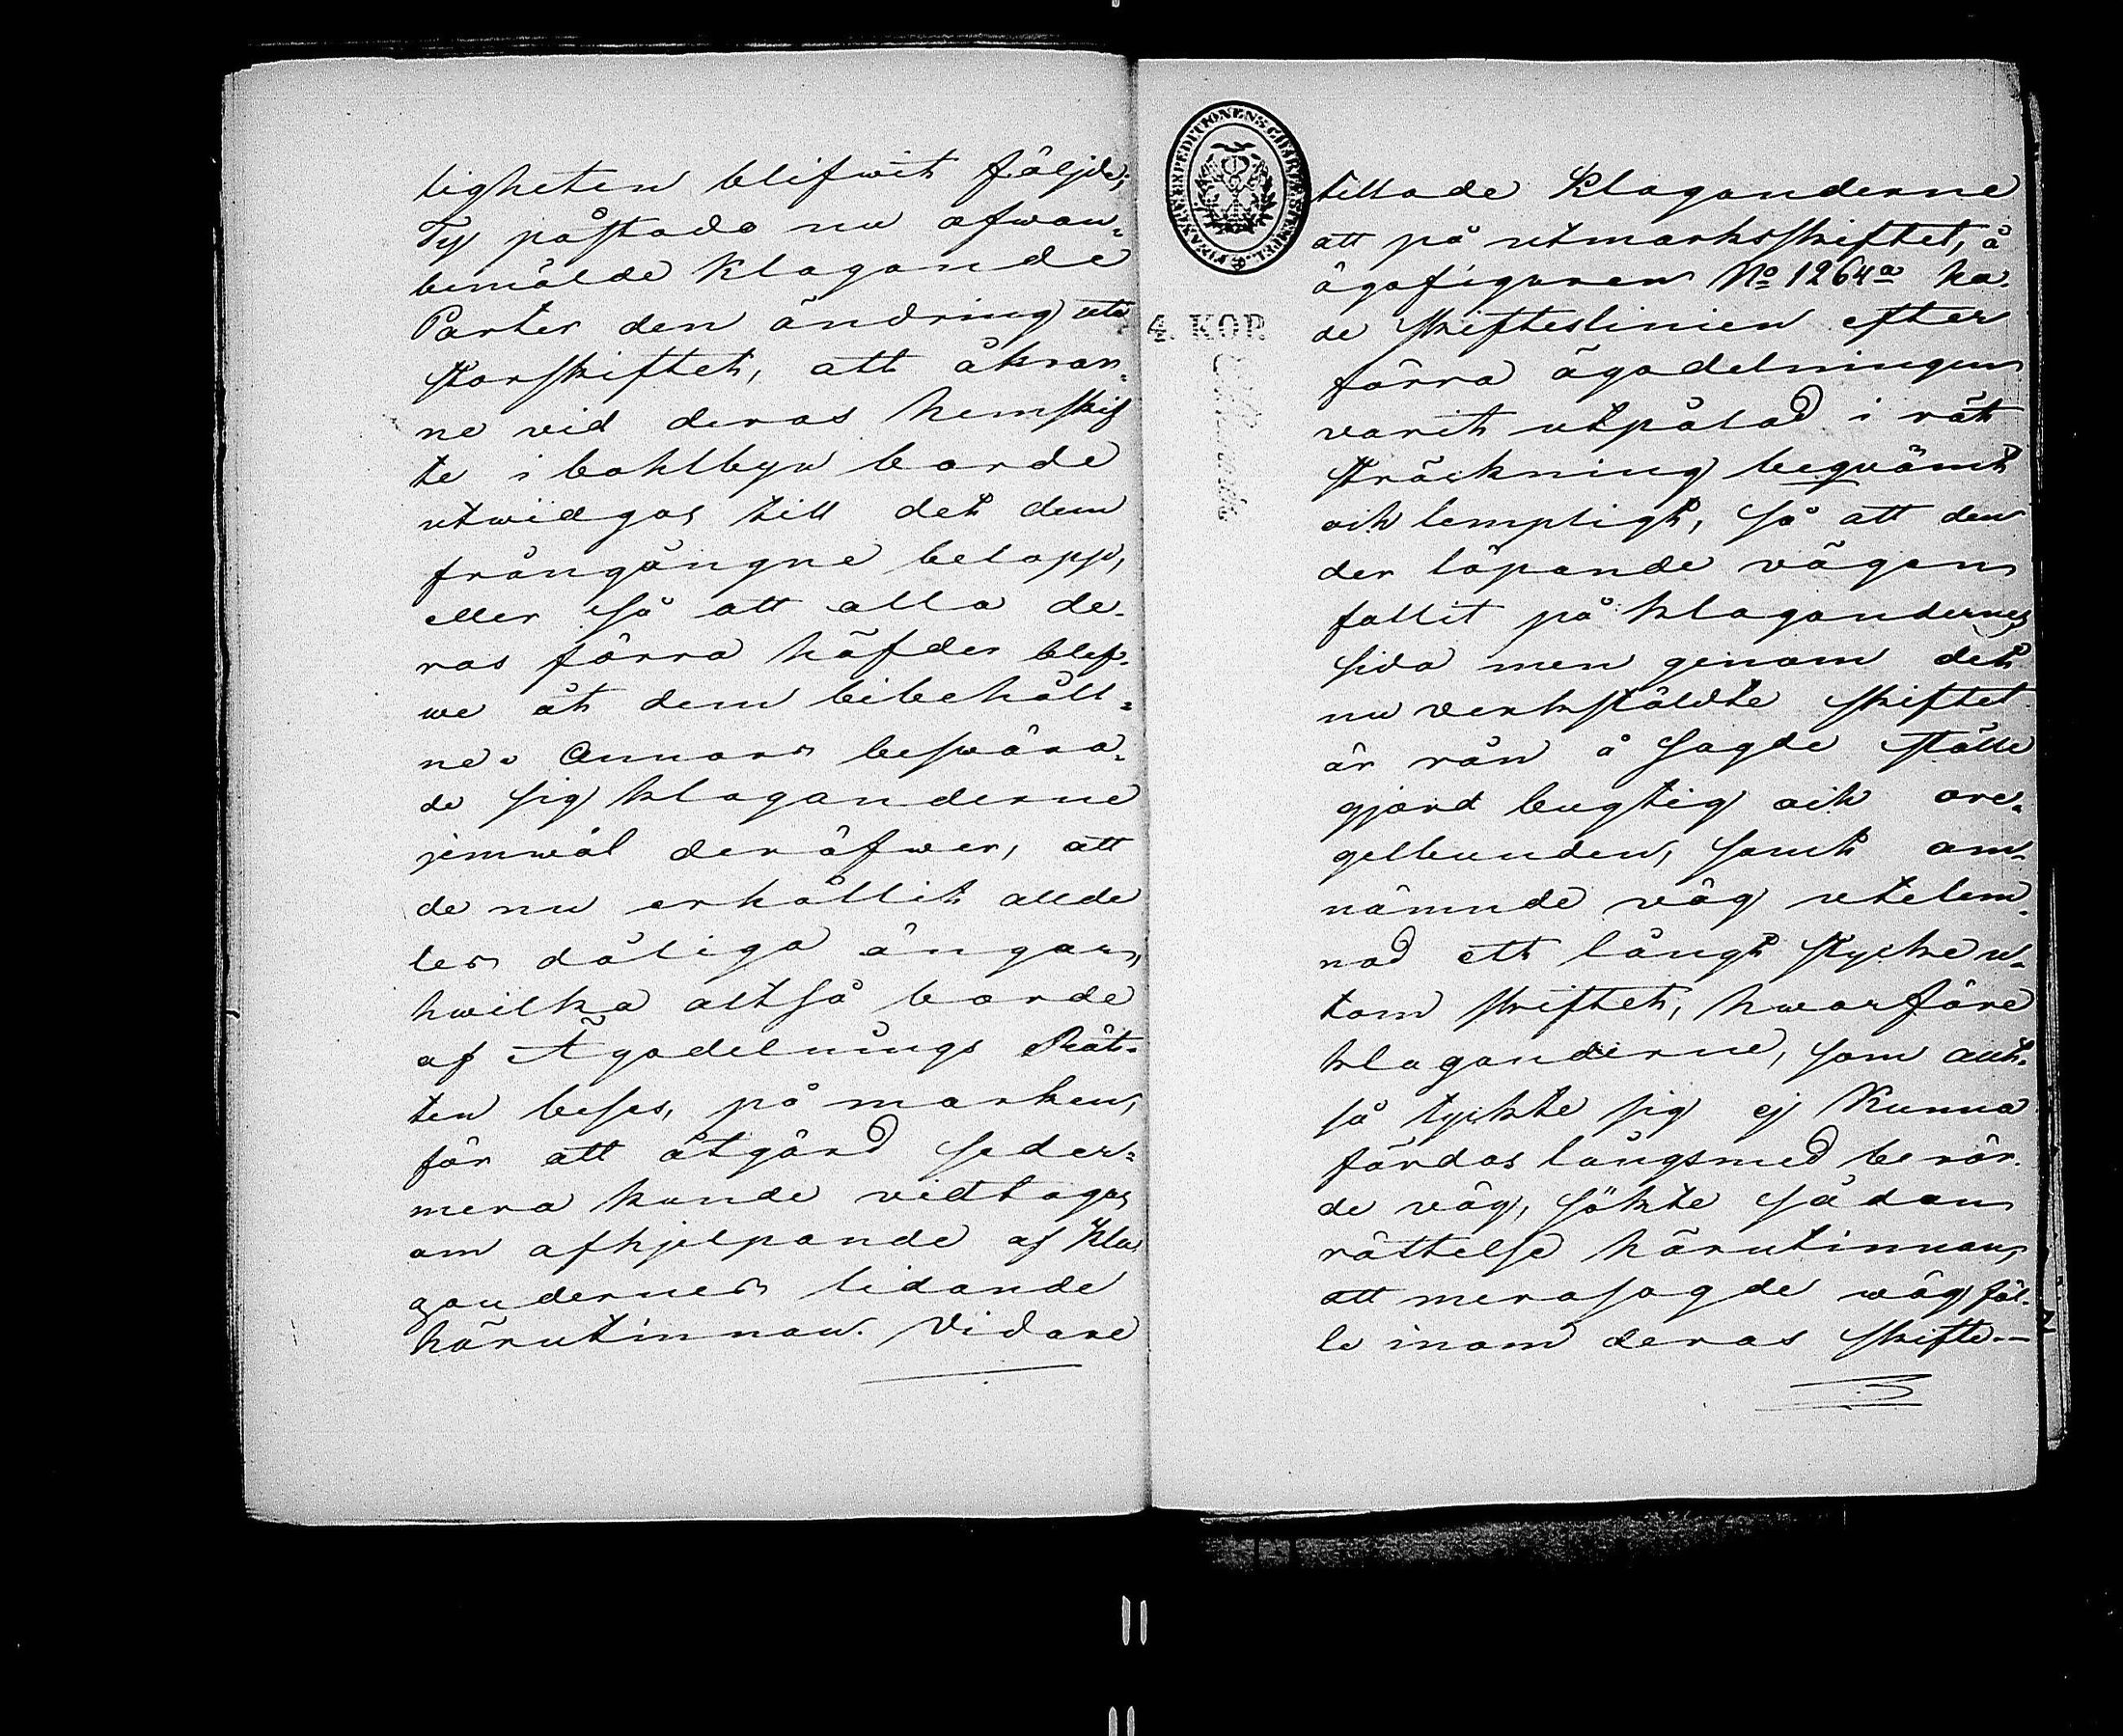 ligheten blifwit följde;
Ty påstodo nu ofwan-
bemälde Klagande
Parter den ändring uti
storskiftet, att åkrar-
ne vid deras hemskif
te i bohlbyn borde
utwidgas till det dem
frångångne belopp,
eller så att alla de-
ras förra häfder blef-
we åt dem bibehåll-
ne. Annars beswära-
de sig klaganderne
jemwäl deröfwer, att
de nu erhållit allde
les dåliga ängar,
hwilka altså borde
af Ägodelnings Rät-
ten beses, på marken,
för att åtgärd seder-
mera kunde vidtagas
om afhjelpande af Kla
gandernes lidande
härutinnan. Vidare
FINANS EXPEDITIONENS CHARTÆ STEMPEL
4. KOP
tillade Klaganderne
att på utmarksskiftet, å
ägofiguren No 1264a ha-
de skifteslinien efter
förra ägodelningen
varit utpålad i rät
sträckning beqvämt
och lempligt, så att den
der löpande vägen
fallit på klagandernes
sida men genom det
nu verkställdte skiftet
är rån å sagde ställe
gjord bugtig och ore-
gelbunden, samt om-
nämnde väg utelem-
nad ett långt stycke u-
tom skiftet, hwarföre
klaganderne, som allt-
så tyckte sig ej Kunna
färdas långsmed berör-
de väg, sökte sådan
rättelse härutinnan,
att merasagde wäg föl-
le inom deras skifte.—